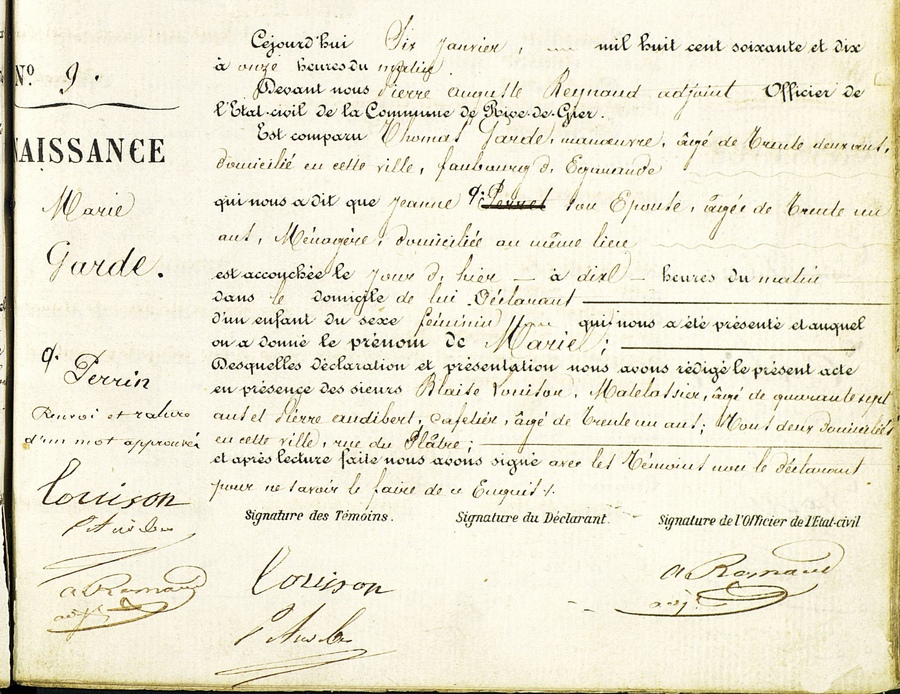 Nº 9.
NAISSANCE
Marie
Garde.
Perrin
Renvoi et rature
d'un mot approuvés
Louison
P Audibe
A Reynaud
adjt
Cejourd'hui Six Janvier, mil huit cent soixante et dix
à onze heures du matin
Devant nous Pierre auguste Reynaud adjoint Officier de
l'Etat-civil de la Commune de Rive-de-Gier.
Est comparu Thomas Garde, manœuvre, âgé de Trente deux ans,
domicilié en cette ville, faubourg d'Egarande
qui nous a dit que Jeanne Perret son Epouse, âgée de Trente un
ans, Ménagère, domiciliée au même lieu
est accouchée le jour d'hier à dix heures du matin
dans le domicile de lui Déclarant
d'un enfant du sexe féminin qui nous a été présenté et auquel
on a donné le prénom de Marie;
Desquelles déclaration et présentation nous avons rédigé le présent acte
en présence des sieurs Blaise Louison, Matelassier, âgé de quarante sept
ans et Pierre audibert, Cafetier, âgé de Trente un ans; Tous deux Domiciliés
en cette ville, rue du Plâtre;
et après lecture faite nous avons signé avec les Témoins non le déclarant
pour ne savoir le faire de ce Enquis.
Signature des Témoins. Signature du Déclarant. Signature de l'Officier de l'Etat-civil
Louison
P Audibe
A Reynaud
adjt